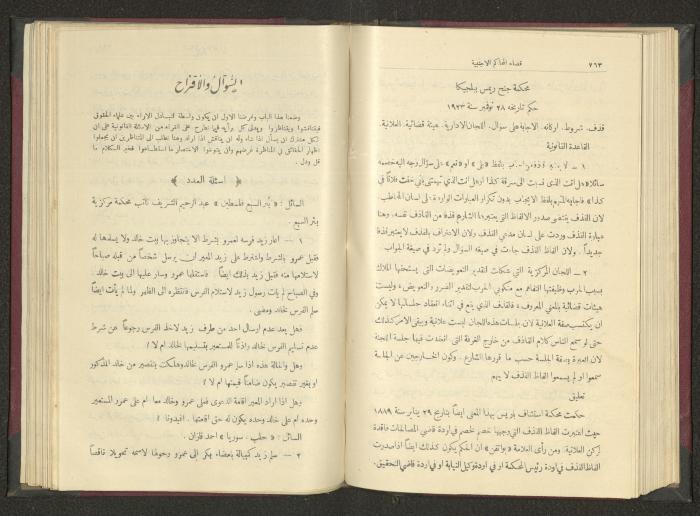 ٧٦٣ قضاء المحاكم الاجنبية
محكمة جنح ريس ببلجيكا
حكم تاريخه ٢٨ نوفمبر سنة ١٩٢٣
قذف. شروط. اركانه. الاجابة على سؤال. اللجان الادارية. هيئة قضائية. العلانية.
القاعدة القانونية
١ – لا يعد قذفا من اجاب بلفظ «بلى» او «نعم» على سؤال وجه اليه خصمه
سائلا «هل انت الذي نسبت الى سرقة كذا او هل انت الذي تهمني باني خنت فلانا في
كذا» فاجابه المتهم بلفظ الايجاب بدون تكرار العبارات الواردة على لسان المخاطب.
لان القذف يقتضي صدور الالفاظ التي يعتبرها الشارع قذفا من القاذف نفسه. وهنا
عبارة القذف وردت على لسان مدعي القذف ولان الاعتراف بالقذف لا يعتبر قذفا
جديداً. ولان الفاظ القذف جاءت في صيغة السؤال ولم ترد في صيغة الجواب
٢ – اللجان المركزية التي شكلت لتقدير التعويضات التي يستحقها الملاك
بسبب الحرب وظيفتها التفاهم مع منكوبي الحرب لتقدير الضرر والتعويض، وليست
هيئات قضائية بالمعنى المعروف، فالقذف الذي يقع في اثناء انعقاد جلساتها لا يمكن
ان يكتسب صفة العلانية لان جلسات هذه اللجان ليست علانية ويبقى الامر كذلك
حتى لو سمع الناس كلام القاذف من خارج الغرفة التي اتخذت فيها جلسة اللجنة
لان العبرة بصفة الجلسة حسب ما قررها الشارع. وكون الخارجين عن الجلسة
سمعوا او لم يسمعوا الفاظ القذف لا يهم
تعليق
حكمت محكمة استئناف باريس بهذا المعنى ايضاً بتاريخ ٢٩ يناير سنة ١٨١٩
حيث اعتبرت الفاظ القذف التي وجهها خصم لخصم في اودة قاضي المصالحات فاقدة
لركن العلانية: ومن رأى العلامة «واتفن» ان الحكم يكون كذلك ايضاً اذا صدرت
الفاظ القذف في اودة رئيس المحكمة او في اودة وكيل النيابة او في اودة قاضي التحقيق.
السؤال والاقتراح
وضعنا هذا الباب وغرضنا الاول ان يكون واسطة لتبادل الاراء بين علماء الحقوق
فيتناقشوا ويتناظروا ويدلى كل برأيه فيما يطرح على القراء من الاسئلة القانونية على ان
لكل مشترك ان يسأل اذا شاء وله ان يناقش اذا اراد وهنا نطلب الى المتناظرين ان يجعلوا
اظهار الحقائق في المناظرة غرضهم وان يتوخوا الاختصار ما استطاعوا فخير الكلام ما
قل ودل.
﴿ اسئلة العدد ﴾
السائل: «بئر السبع فلسطين» عبد الرحيم الشريف نائب محكمة مركزية
بئر السبع.
١ – اعار زيد فرسه لعمرو بشرط الا يتجاوز بها بيت خالد ولا يسلمها له
فقبل عمرو بالشرط واشترط على زيد المعير ان يرسل شخصاً من قبله صباحاً
لاستلامها منه فقبل زيد بذلك ايضاً. فاستلمها عمرو وسار عليها الى بيت خالد.
وفي الصباح لم يأت رسول زيد لاستلام الفرس فانتظره الى الظهر ولما لم يأت ايضاً
سلم الفرس لخالد ومضى.
فهل يعد عدم ارسال احد من طرف زيد لاخذ الفرس رجوعاً عن شرط
عدم تسليم الفرس لخالد واذناً للمستعير بتسليمها لخالد ام لا؟
وهل والحالة هذه اذا سلم عمرو الفرس لخالد وهلكت بتقصير من خالد المذكور
او بغير تقصير يكون ضامناً قيمتها ام لا؟
وهل اذا اراد المعير اقامة الدعوى فعلى عمرو وخالد معا ام على عمرو المستعير
وحده ام على خالد وحده يكون له حق اقامتها. افيدونا؟
السائل: «حلب. سوريا» احمد قلزان.
٢ – سلم زيد كمبيالة بامضاء بكر الى عمرو وحولها لاسمه تحويلا ناقصاً